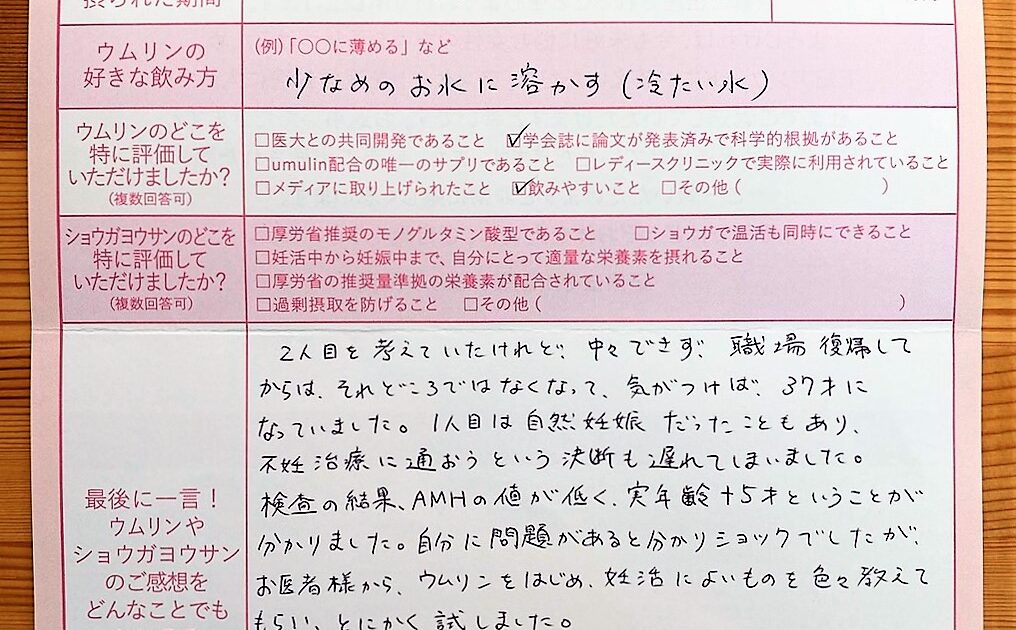 摂られた期間
ウムリンの
好きな飲み方
(例)「○○に薄める」など
少なめのお水に溶かす(冷たい水)
ウムリンのどこを
特に評価して
いただけましたか?
(複数回答可)
□医大との共同開発であること ☑学会誌に論文が発表済みで科学的根拠があること
□umulin配合の唯一のサプリであること □レディースクリニックで実際に利用されていること
□メディアに取り上げられたこと ☑飲みやすいこと □その他( )
ショウガヨウサンのどこを
特に評価して
いただけましたか?
(複数回答可)
□厚労省推奨のモノグルタミン酸型であること □ショウガで温活も同時にできること
□妊活中から妊娠中まで、自分にとって適量な栄養素を摂れること
□厚労省の推奨量準拠の栄養素が配合されていること
□過剰摂取を防げること □その他( )
最後に一言!
ウムリンや
ショウガヨウサン
のご感想を
どんなことでも
2人目を考えていたけれど、中々できず、職場復帰して
からは、それどころではなくなって、気がつけば、37才に
なっていました。1人目は自然妊娠だったこともあり、
不妊治療に通おうという決断も遅れてしまいました。
検査の結果、AMHの値が低く、実年齢+5才ということが
分かりました。自分に問題があると分かりショックでしたが、
お医者様から、ウムリンをはじめ、妊活によいものを色々教えて
もらい、とにかく試しました。